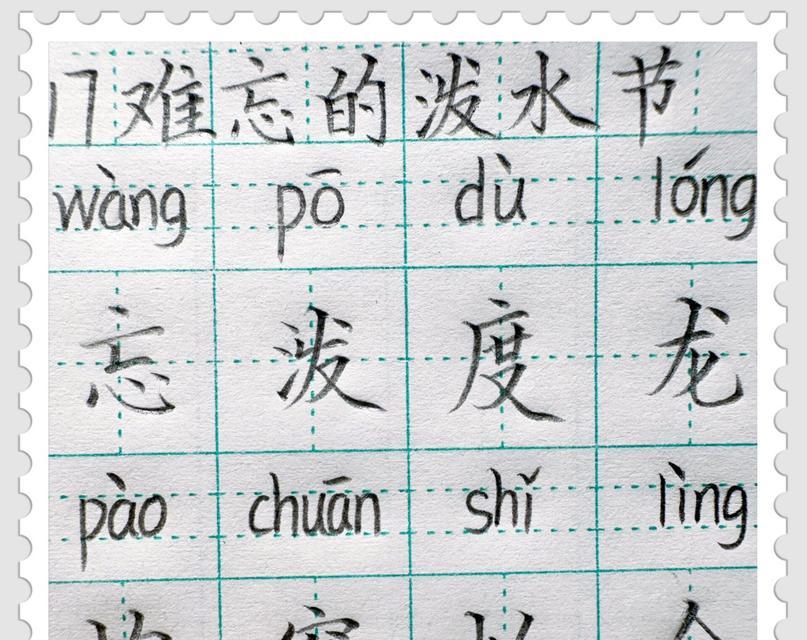 17难忘的泼水节
wàng pō dù lóng
忘 泼 度 龙
pào chuān shǐ lìng